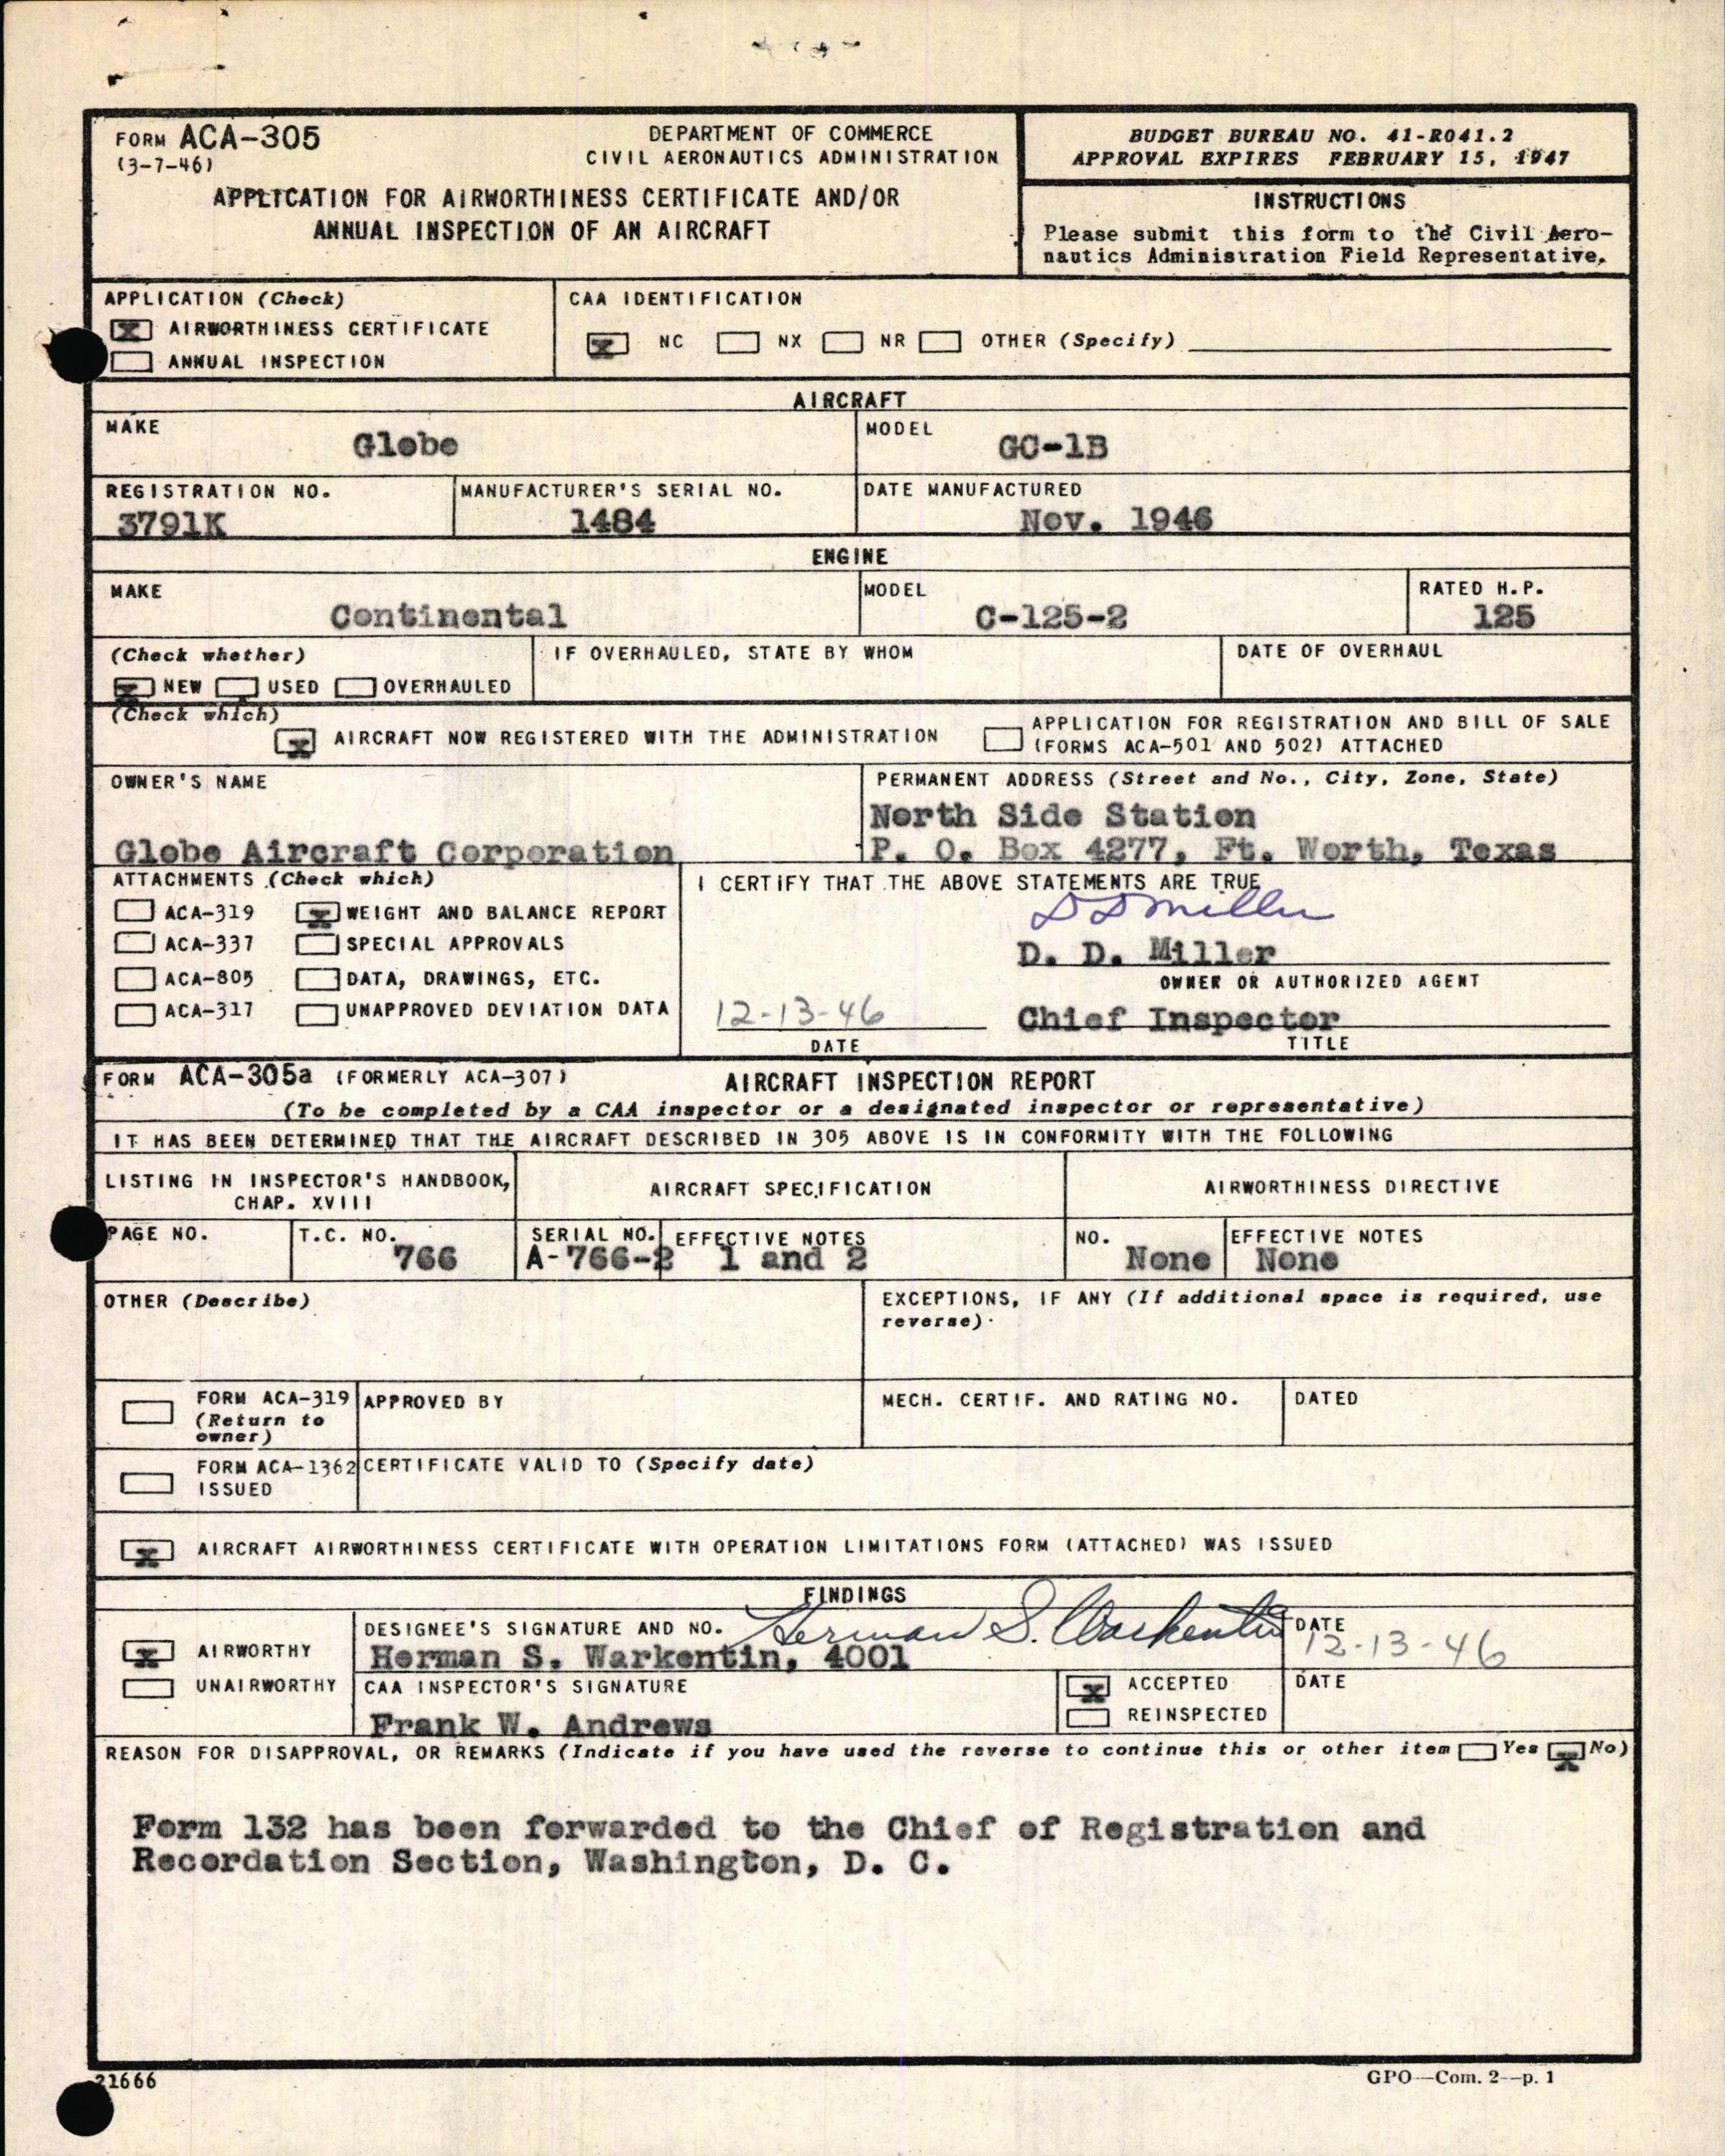 FORM ACA-305
(3-7-46)
DEPARTMENT OF COMMERCE
CIVIL AERONAUTICS ADMINISTRATION
APPLICATION FOR AIRWORTHINESS CERTIFICATE AND/OR
ANNUAL INSPECTION OF AN AIRCRAFT
BUDGET BUREAU NO. 41-R041.2
APPROVAL EXPIRES FEBRUARY 15, 1947
INSTRUCTIONS
Please submit this form to the Civil Aero-
nautics Administration Field Representative.
APPLICATION (Check)
X AIRWORTHINESS CERTIFICATE
ANNUAL INSPECTION
CAA IDENTIFICATION
X NC NX NR OTHER (Specify)
AIRCRAFT
MAKE
Globe
MODEL
GC-1B
REGISTRATION NO.
3791K
MANUFACTURER'S SERIAL NO.
1484
DATE MANUFACTURED
Nov. 1946
ENGINE
MAKE
Continental
MODEL
C-125-2
RATED H.P.
125
(Check whether)
X NEW USED OVERHAULED
IF OVERHAULED, STATE BY WHOM
DATE OF OVERHAUL
(Check which)
X AIRCRAFT NOW REGISTERED WITH THE ADMINISTRATION
APPLICATION FOR REGISTRATION AND BILL OF SALE
(FORMS ACA-501 AND 502) ATTACHED
OWNER'S NAME
Globe Aircraft Corporation
PERMANENT ADDRESS (Street and No., City, Zone, State)
North Side Station
P. O. Box 4277, Ft. Worth, Texas
ATTACHMENTS (Check which)
ACA-319 X WEIGHT AND BALANCE REPORT
ACA-337 SPECIAL APPROVALS
ACA-805 DATA, DRAWINGS, ETC.
ACA-317 UNAPPROVED DEVIATION DATA
I CERTIFY THAT THE ABOVE STATEMENTS ARE TRUE
D D Miller
D. D. Miller
OWNER OR AUTHORIZED AGENT
12-13-46 Chief Inspector
DATE TITLE
FORM ACA-305a (FORMERLY ACA-307) AIRCRAFT INSPECTION REPORT
(To be completed by a CAA inspector or a designated inspector or representative)
IT HAS BEEN DETERMINED THAT THE AIRCRAFT DESCRIBED IN 305 ABOVE IS IN CONFORMITY WITH THE FOLLOWING
LISTING IN INSPECTOR'S HANDBOOK,
CHAP. XVIII
AIRCRAFT SPECIFICATION
AIRWORTHINESS DIRECTIVE
PAGE NO.
T.C. NO.
766
SERIAL NO.
A-766-2
EFFECTIVE NOTES
1 and 2
NO.
None
EFFECTIVE NOTES
None
OTHER (Describe)
EXCEPTIONS, IF ANY (If additional space is required, use
reverse)
FORM ACA-319
(Return to
owner)
APPROVED BY
MECH. CERTIF. AND RATING NO.
DATED
FORM ACA-1362
ISSUED
CERTIFICATE VALID TO (Specify date)
X AIRCRAFT AIRWORTHINESS CERTIFICATE WITH OPERATION LIMITATIONS FORM (ATTACHED) WAS ISSUED
FINDINGS
X AIRWORTHY
UNAIRWORTHY
DESIGNEE'S SIGNATURE AND NO. Herman S. Warkentin
Herman S. Warkentin, 4001
DATE
12-13-46
CAA INSPECTOR'S SIGNATURE
Frank W. Andrews
X ACCEPTED
REINSPECTED
DATE
REASON FOR DISAPPROVAL, OR REMARKS (Indicate if you have used the reverse to continue this or other item Yes X No)
Form 132 has been forwarded to the Chief of Registration and
Recordation Section, Washington, D. C.
21666
GPO—Com. 2—p. 1